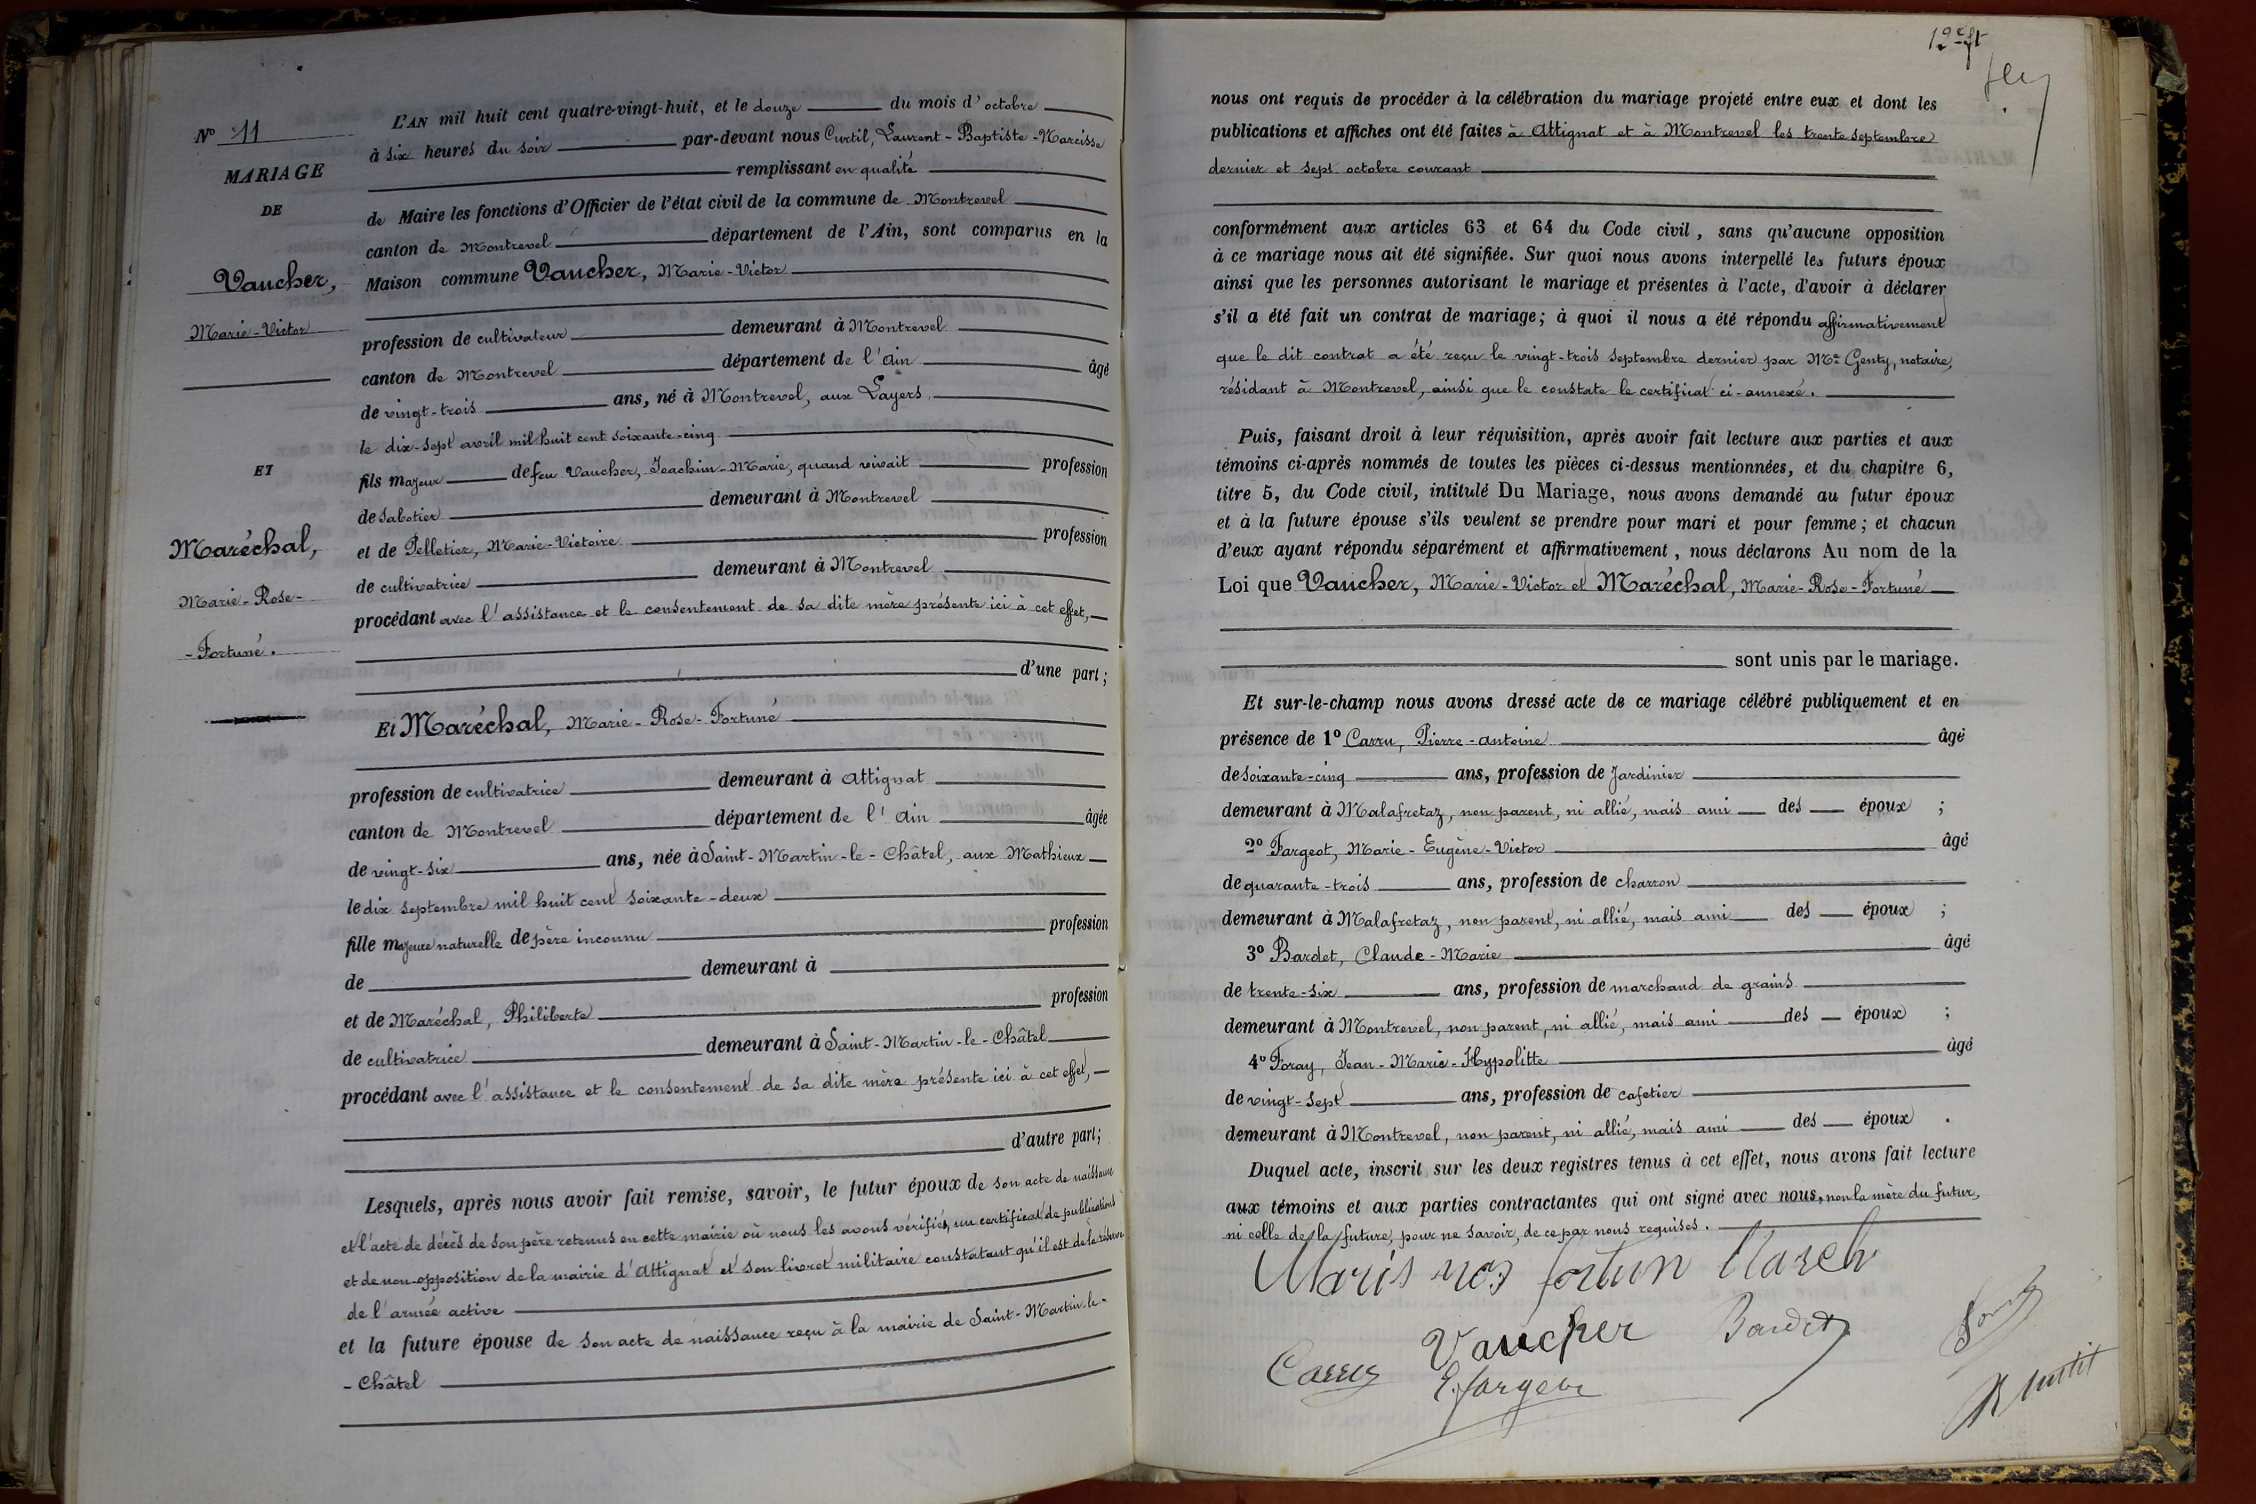 N° 11
MARIAGE
DE
Vaucher,
Marie-Victor
ET
Maréchal,
Marie-Rose-
-Fortuné.
L'AN mil huit cent quatre-vingt-huit, et le douze du mois d'octobre
à six heures du soir par-devant nous Curtil, Laurent-Baptiste-Narcisse
remplissant en qualité
de Maire les fonctions d'Officier de l'état civil de la commune de Montrevel
canton de Montrevel département de l'Ain, sont comparus en la
Maison commune Vaucher, Marie-Victor
profession de cultivateur demeurant à Montrevel
canton de Montrevel département de l'Ain âgé
de vingt-trois ans, né à Montrevel, aux Layers
le dix-sept avril mil huit cent soixante-cinq
fils majeur de feu Vaucher, Joachim-Marie, quand vivait profession
de sabotier demeurant à Montrevel
et de Pelletier, Marie-Victoire profession
de cultivatrice demeurant à Montrevel
procédant avec l'assistance et le consentement de sa dite mère présente ici à cet effet,
d'une part;
Et Maréchal, Marie-Rose-Fortuné
profession de cultivatrice demeurant à Attignat
canton de Montrevel département de l'Ain âgée
de vingt-six ans, née à Saint-Martin-le-Châtel, aux Mathieux
le dix septembre mil huit cent soixante-deux
fille majeure naturelle de père inconnu profession
de demeurant à
et de Maréchal, Philiberte profession
de cultivatrice demeurant à Saint-Martin-le-Châtel
procédant avec l'assistance et le consentement de sa dite mère présente ici à cet effet,
d'autre part;
Lesquels, après nous avoir fait remise, savoir, le futur époux de son acte de naissance
et l'acte de décès de son père retenus en cette mairie où nous les avons vérifiés, un certificat de publications
et de non-opposition de la mairie d'Attignat et son livret militaire constatant qu'il est de la réserve
de l'armée active
et la future épouse de son acte de naissance reçu à la mairie de Saint-Martin-le-
-Châtel
nous ont requis de procéder à la célébration du mariage projeté entre eux et dont les
publications et affiches ont été faites à Attignat et à Montrevel les trente septembre
dernier et sept octobre courant
conformément aux articles 63 et 64 du Code civil, sans qu'aucune opposition
à ce mariage nous ait été signifiée. Sur quoi nous avons interpellé les futurs époux
ainsi que les personnes autorisant le mariage et présentes à l'acte, d'avoir à déclarer
s'il a été fait un contrat de mariage; à quoi il nous a été répondu affirmativement
que le dit contrat a été reçu le vingt-trois septembre dernier par Me Genty, notaire,
résidant à Montrevel, ainsi que le constate le certificat ci-annexé.
Puis, faisant droit à leur réquisition, après avoir fait lecture aux parties et aux
témoins ci-après nommés de toutes les pièces ci-dessus mentionnées, et du chapitre 6,
titre 5, du Code civil, intitulé Du Mariage, nous avons demandé au futur époux
et à la future épouse s'ils veulent se prendre pour mari et pour femme; et chacun
d'eux ayant répondu séparément et affirmativement, nous déclarons Au nom de la
Loi que Vaucher, Marie-Victor et Maréchal, Marie-Rose-Fortuné
sont unis par le mariage.
Et sur-le-champ nous avons dressé acte de ce mariage célébré publiquement et en
présence de 1° Carru, Pierre-Antoine âgé
de soixante-cinq ans, profession de Jardinier
demeurant à Malafretaz, non parent, ni allié, mais ami des époux ;
2° Fargeot, Marie-Eugène-Victor âgé
de quarante-trois ans, profession de charron
demeurant à Malafretaz, non parent, ni allié, mais ami des époux ;
3° Bardet, Claude-Marie âgé
de trente-six ans, profession de marchand de grains
demeurant à Montrevel, non parent, ni allié, mais ami des époux ;
4° Foray, Jean-Marie-Hypolitte âgé
de vingt-sept ans, profession de cafetier
demeurant à Montrevel, non parent, ni allié, mais ami des époux .
Duquel acte, inscrit sur les deux registres tenus à cet effet, nous avons fait lecture
aux témoins et aux parties contractantes qui ont signé avec nous, non la mère du futur,
ni celle de la future, pour ne savoir, de ce par nous requises.
Vaucher Bardet
Carru